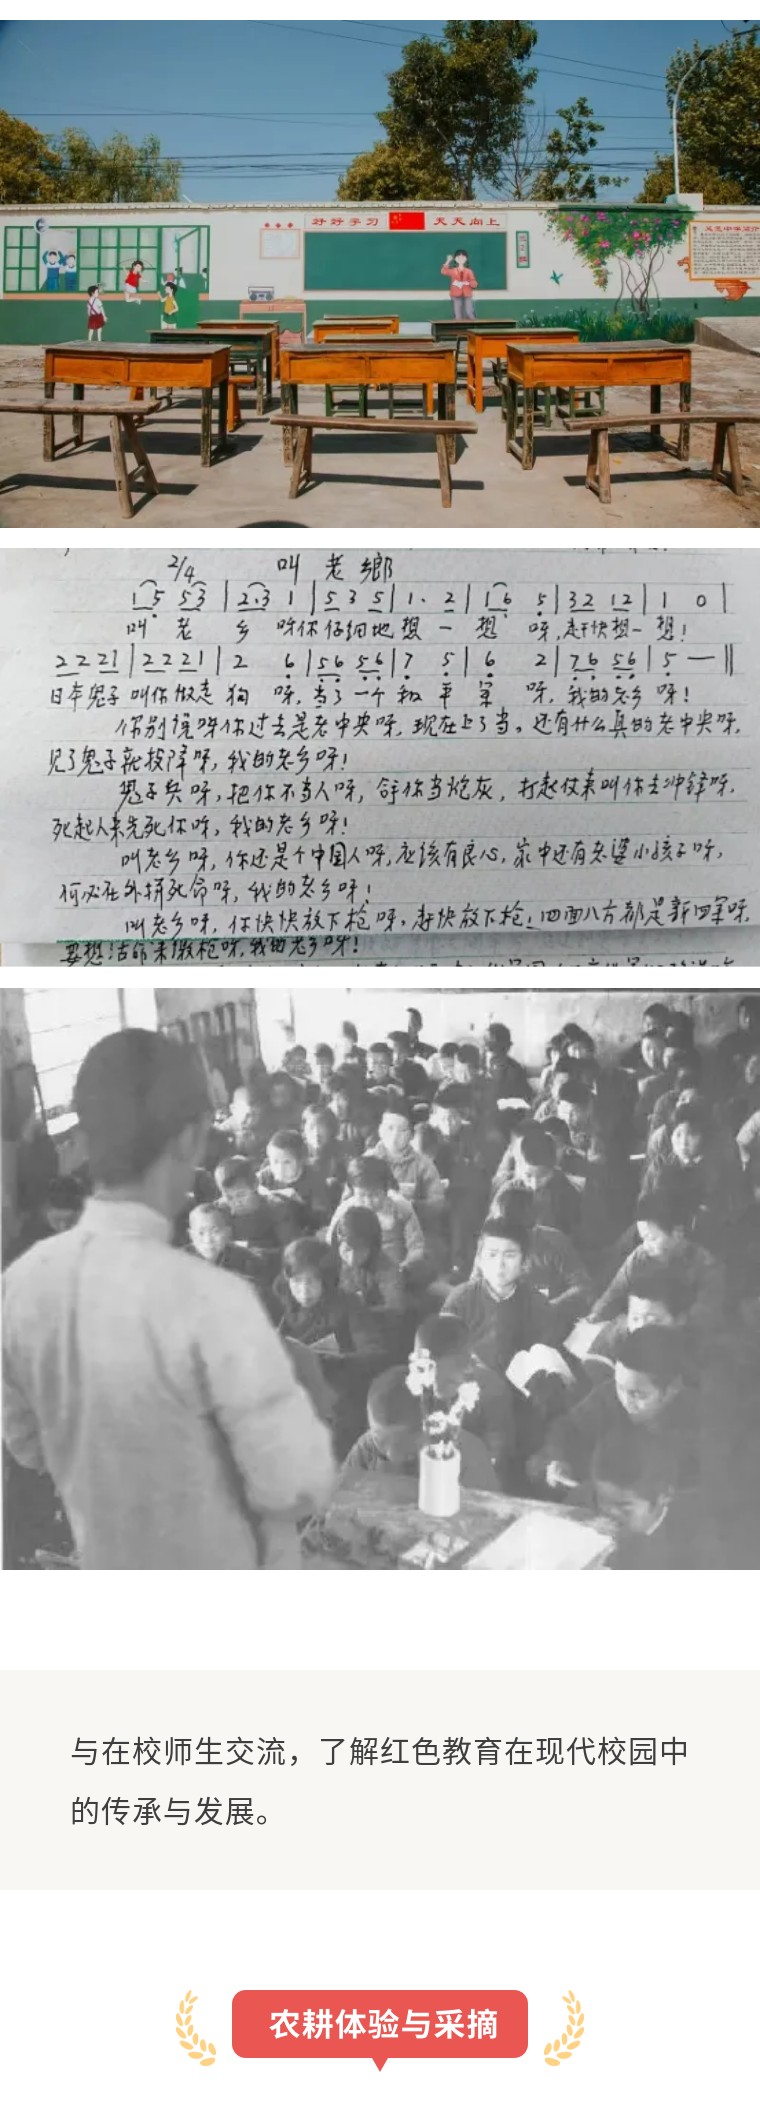 好好学习 天天向上
2/4 叫老鄉
1 5 5 3 | 2·3 1 | 5 3 5 | 1· 2 | 1 6 5 | 3 2 1 2 | 1 0 |
叫 老 乡 呀你仔细地想一想 呀,赶快想一想!
2 2 2 1 | 2 2 2 1 | 2 6 | 5 6 5 6 | 7 5 | 6 2 | 7 6 5 6 | 5 — ||
日本鬼子叫你做走狗 呀,当了一个和平军 呀,我的老乡呀!
你别说呀你过去是老中央呀,现在上了当。还有什么真的老中央呀,
见了鬼子就投降呀,我的老乡呀!
鬼子兵呀,把你不当人呀,拿你当炮灰,打起仗来叫你去冲锋呀,
死起人来先死你呀,我的老乡呀!
叫老乡呀,你还是个中国人呀,应该有良心,家中还有老婆小孩子呀,
何必在外拼死命呀,我的老乡呀!
叫老乡呀,你快快放下枪呀,赶快放下枪!四面八方都是新四军呀,
要想活命来缴枪呀,我的老乡呀!
与在校师生交流,了解红色教育在现代校园中
的传承与发展。
农耕体验与采摘